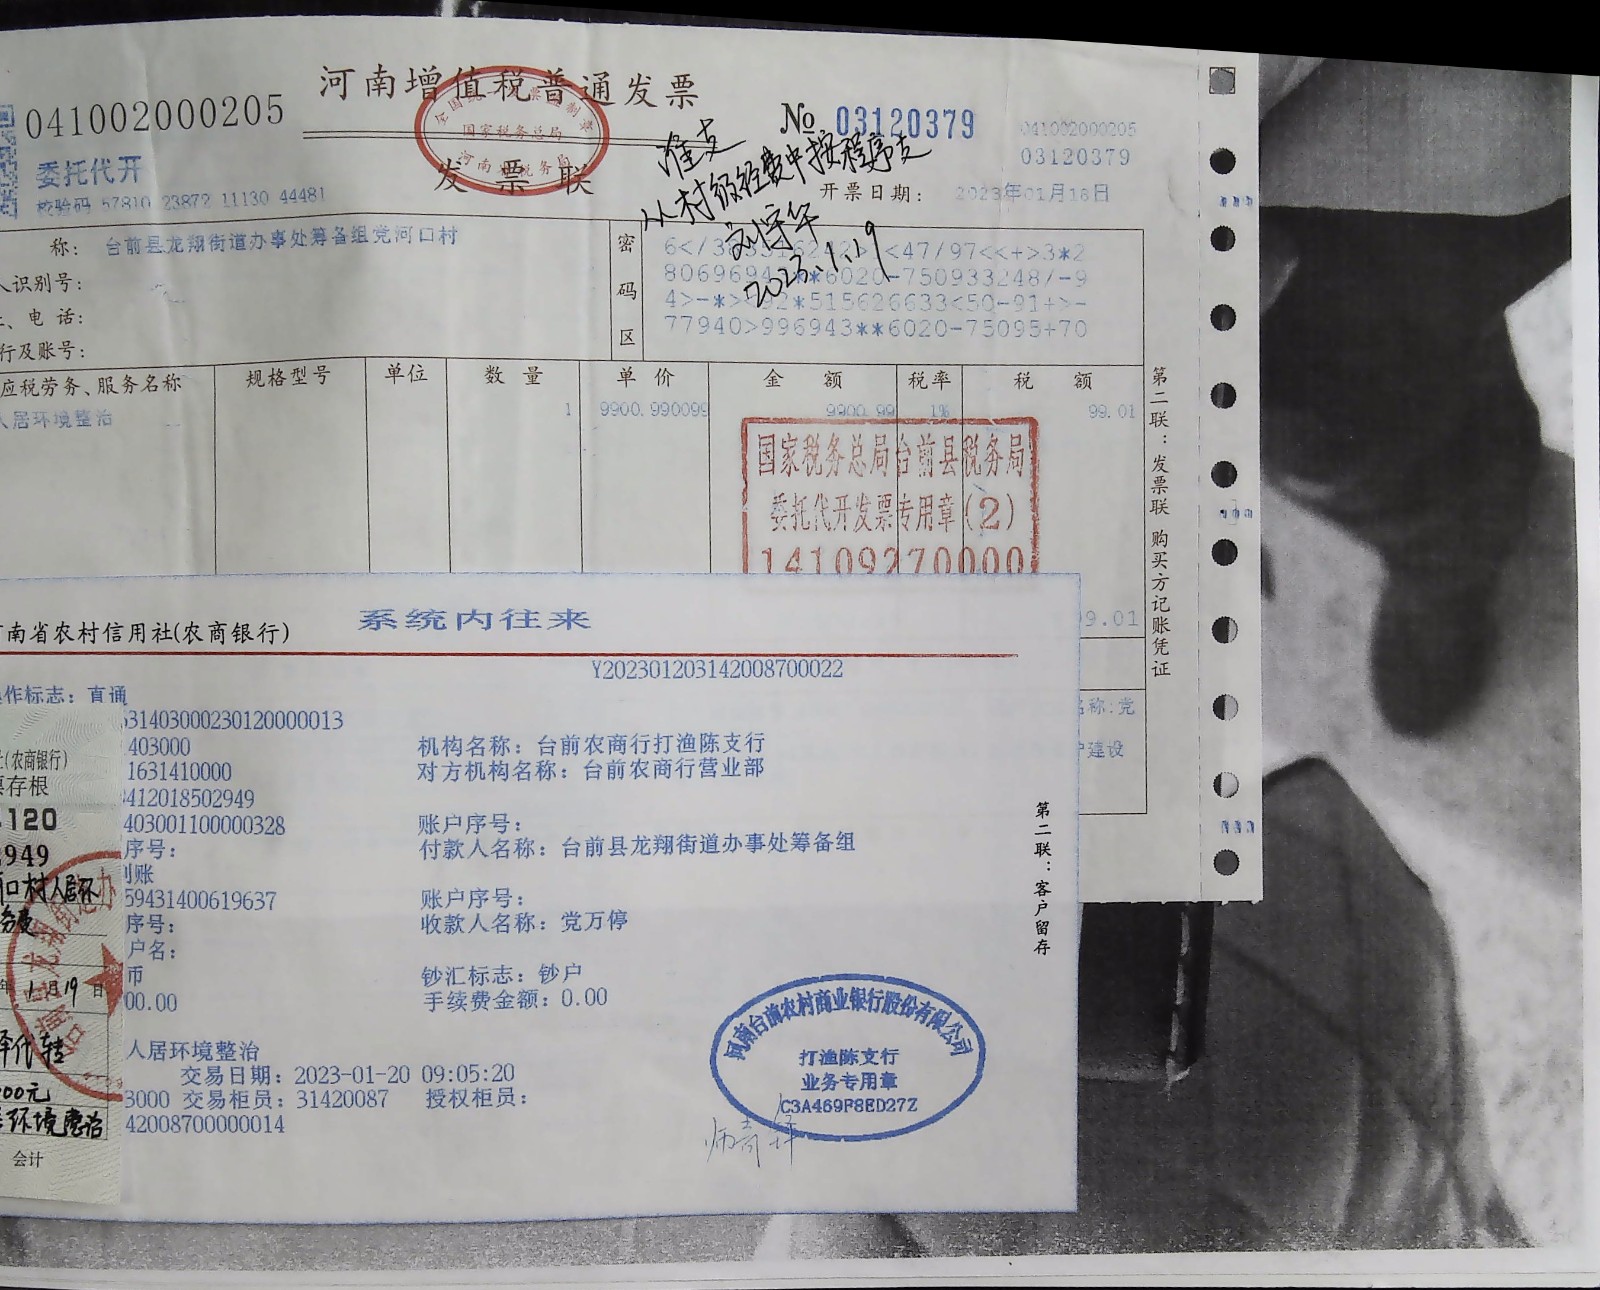 河南增值税普通发票
041002000205
全国统一发票监制章
国家税务总局
河南省税务局
发票联
No 03120379
041002000205
03120379
委托代开
校验码 57810 23872 11130 44481
开票日期：2023年01月18日
准支
从村级经费中按程序支
刘守华
2023.1.19
称：台前县龙翔街道办事处筹备组党河口村
人识别号：
、电 话：
行及账号：
密码区
47/97<<+>3*2
6020-750933248/-9
*515626633<50-91+>-
77940>996943**6020-75095+70
应税劳务、服务名称 规格型号 单位 数 量 单 价 金 额 税率 税 额
人居环境整治 1 9900.990099 9900.99 1% 99.01
国家税务总局台前县税务局
委托代开发票专用章(2)
14109270000
9.01
第二联：发票联 购买方记账凭证
名称:党
户建设
南省农村信用社(农商银行) 系统内往来
Y202301203142008700022
作标志：直通
31403000230120000013
403000 机构名称：台前农商行打渔陈支行
1631410000 对方机构名称：台前农商行营业部
412018502949
403001100000328 账户序号：
序号： 付款人名称：台前县龙翔街道办事处筹备组
账
59431400619637 账户序号：
序号： 收款人名称：党万停
户名：
币 钞汇标志：钞户
00.00 手续费金额：0.00
人居环境整治
交易日期：2023-01-20 09:05:20
3000 交易柜员：31420087 授权柜员：
42008700000014
第二联：客户留存
河南台前农村商业银行股份有限公司
打渔陈支行
业务专用章
C3A469F8ED27Z
(农商银行)
票存根
120
949
口村人居环
年1月19日
代转
000元
环境整治
会计